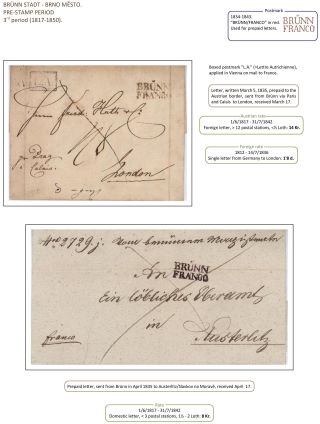 BRÜNN STADT - BRNO MĚSTO.
PRE-STAMP PERIOD
3rd period (1817-1850).
Postmark
1834-1843.
"BRÜNN/FRANCO" in red.
Used for prepaid letters.
BRÜNN
FRANCO
BRÜNN
FRANCO
London
Boxed postmark "L.A." (=Lettre Autrichienne),
applied in Vienna on mail to France.
Letter, written March 5, 1835, prepaid to the
Austrian border, sent from Brünn via Paris
and Calais to London, received March 17.
Austrian rate
1/6/1817 - 31/7/1842
Foreign letter, > 12 postal stations, <½ Loth: 14 Kr.
Foreign rate
1812 - 14/7/1836
Single letter from Germany to London: 1'8 d.
An
BRÜNN
FRANCO
Ein löbliches Oberamt
in
franco
Austerlitz
Prepaid letter, sent from Brünn in April 1839 to Austerlitz/Slavkov na Moravě, received April 17.
Rate
1/6/1817 - 31/7/1842
Domestic letter, < 3 postal stations, 1½ - 2 Loth: 8 Kr.